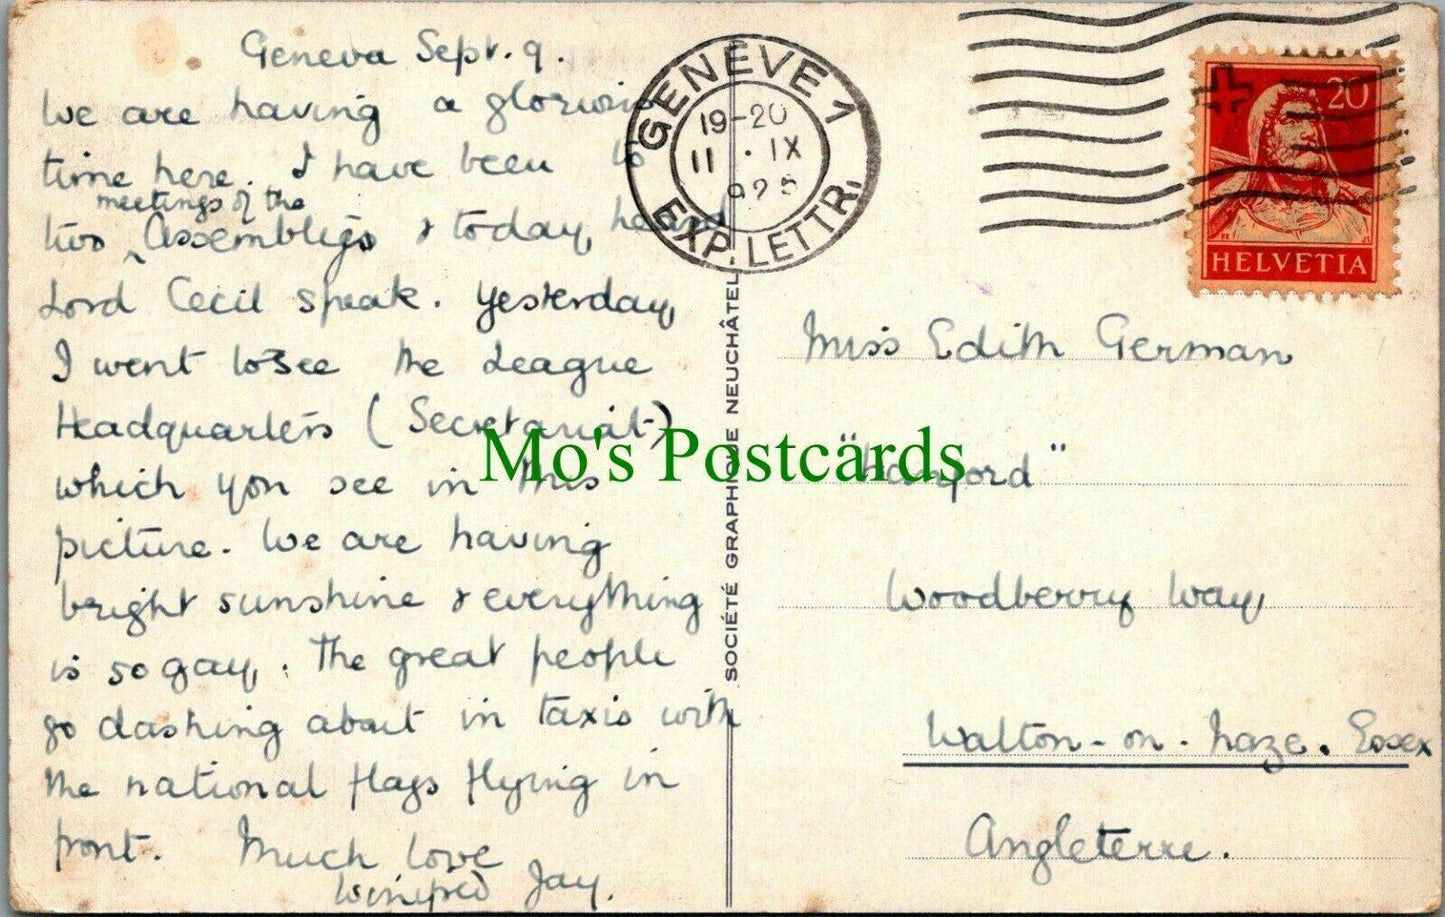 Geneva Sept. 9.
We are having a glorious
time here. I have been to
meetings of the
two ^ Assemblys & today, heard
Lord Cecil speak. Yesterday,
I went to see the League
Headquarters (Secretariat)
which you see in this
picture. We are having
bright sunshine & everything
is so gay,. The great people
go dashing about in taxis with
the national flags flying in
front. Much love
Winifred Jay.
SOCIÉTÉ GRAPHIQUE NEUCHÂTEL
GENÈVE 1
19-20
11 · IX
925
EXP. LETTR.
20
HELVETIA
Miss Edith German
"Hanford"
Woodberry Way,
Walton-on-Naze. Essex
Angleterre.
Mo's Postcards